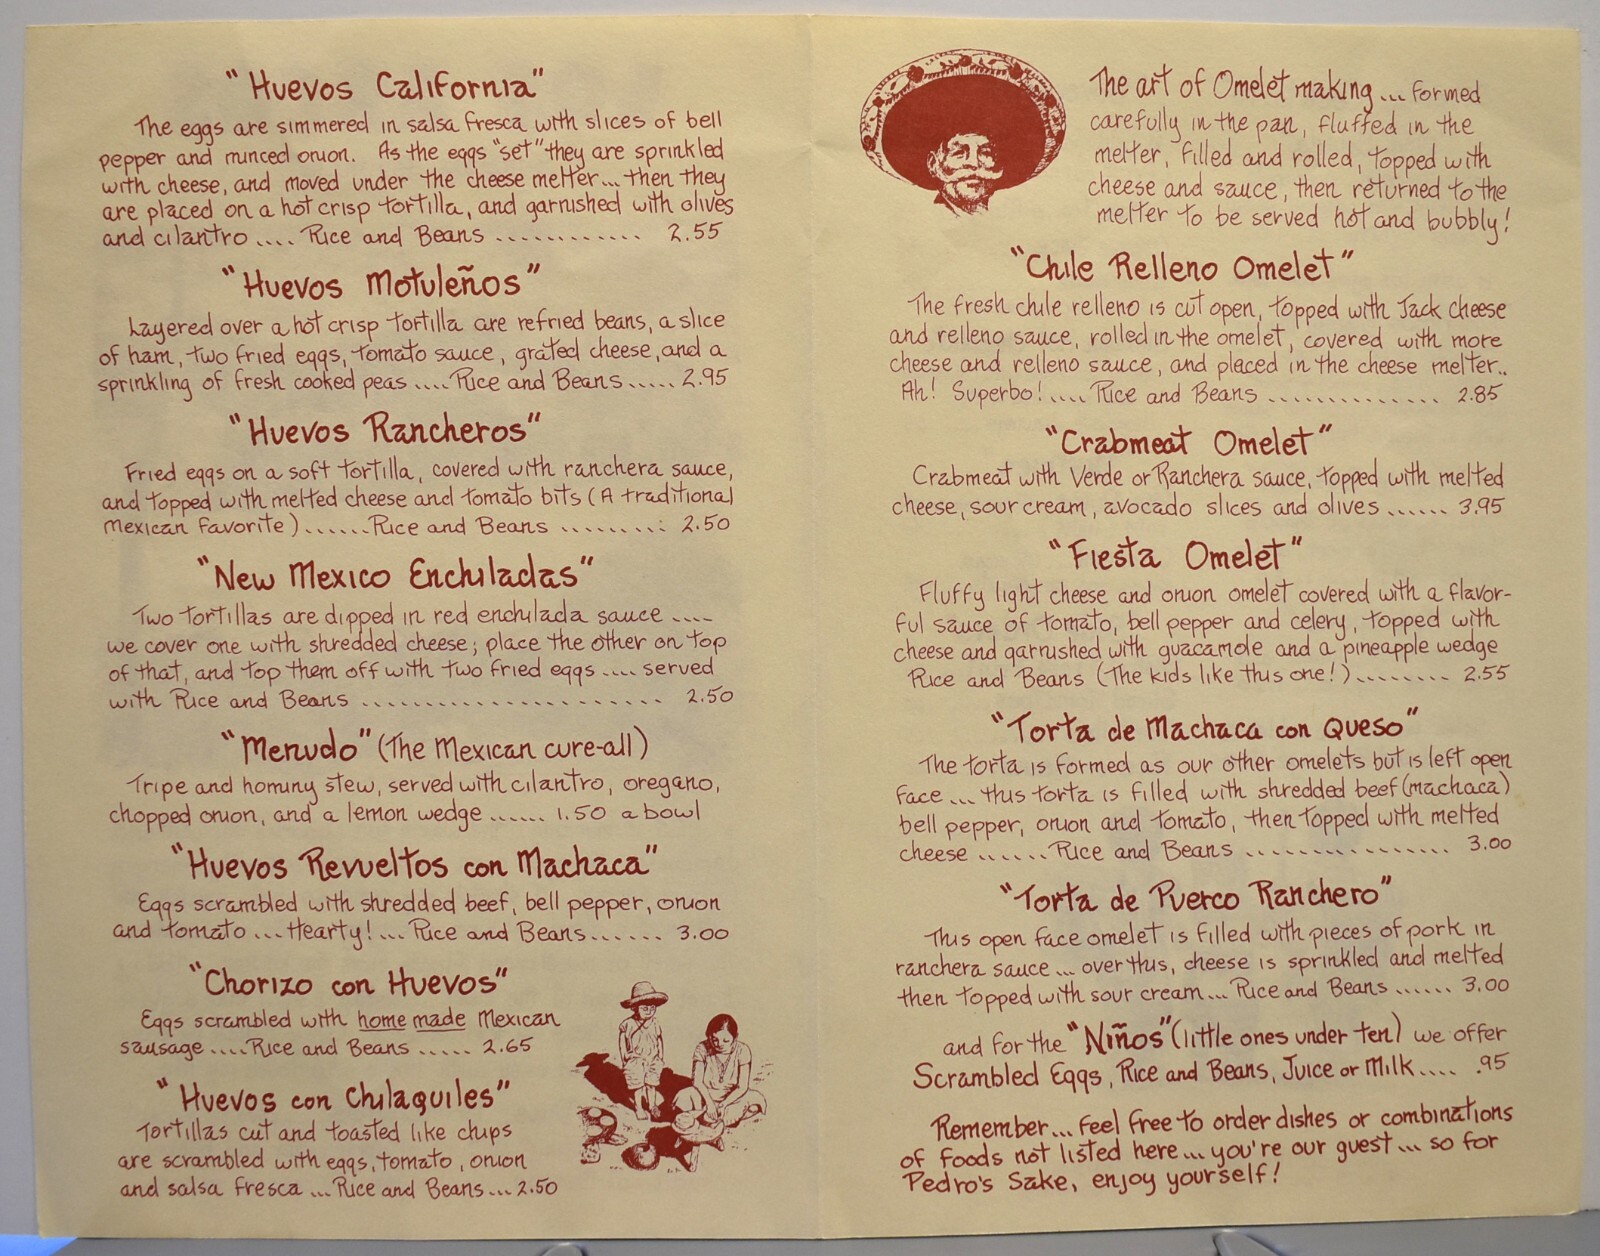 "Huevos California"
The eggs are simmered in salsa fresca with slices of bell
pepper and minced onion. As the eggs "set" they are sprinkled
with cheese, and moved under the cheese melter... then they
are placed on a hot crisp tortilla, and garnished with olives
and cilantro .... Rice and Beans ............ 2.55
"Huevos Motuleños"
Layered over a hot crisp tortilla are refried beans, a slice
of ham, two fried eggs, tomato sauce, grated cheese, and a
sprinkling of fresh cooked peas .... Rice and Beans ..... 2.95
"Huevos Rancheros"
Fried eggs on a soft tortilla, covered with ranchera sauce,
and topped with melted cheese and tomato bits (A traditional
Mexican favorite) ...... Rice and Beans ......... 2.50
"New Mexico Enchiladas"
Two tortillas are dipped in red enchilada sauce ....
we cover one with shredded cheese; place the other on top
of that, and top them off with two fried eggs .... served
with Rice and Beans ...................... 2.50
"Menudo" (The Mexican cure-all)
Tripe and hominy stew, served with cilantro, oregano,
chopped onion, and a lemon wedge ...... 1.50 a bowl
"Huevos Revueltos con Machaca"
Eggs scrambled with shredded beef, bell pepper, onion
and tomato ... Hearty! ... Rice and Beans ...... 3.00
"Chorizo con Huevos"
Eggs scrambled with home made Mexican
sausage .... Rice and Beans ..... 2.65
"Huevos con Chilaquiles"
Tortillas cut and toasted like chips
are scrambled with eggs, tomato, onion
and salsa fresca ... Rice and Beans ... 2.50
The art of Omelet making ... formed
carefully in the pan, fluffed in the
melter, filled and rolled, topped with
cheese and sauce, then returned to the
melter to be served hot and bubbly!
"Chile Relleno Omelet"
The fresh chile relleno is cut open, topped with Jack cheese
and relleno sauce, rolled in the omelet, covered with more
cheese and relleno sauce, and placed in the cheese melter..
Ah! Superbo! .... Rice and Beans .............. 2.85
"Crabmeat Omelet"
Crabmeat with Verde or Ranchera sauce, topped with melted
cheese, sour cream, avocado slices and olives ...... 3.95
"Fiesta Omelet"
Fluffy light cheese and onion omelet covered with a flavor-
ful sauce of tomato, bell pepper and celery, topped with
cheese and garnished with guacamole and a pineapple wedge
Rice and Beans (The kids like this one!) ........ 2.55
"Torta de Machaca con Queso"
The torta is formed as our other omelets but is left open
face ... this torta is filled with shredded beef (machaca)
bell pepper, onion and tomato, then topped with melted
cheese ...... Rice and Beans ................ 3.00
"Torta de Puerco Ranchero"
This open face omelet is filled with pieces of pork in
ranchera sauce ... over this, cheese is sprinkled and melted
then topped with sour cream ... Rice and Beans ...... 3.00
and for the "Niños" (little ones under ten) we offer
Scrambled Eggs, Rice and Beans, Juice or Milk .... .95
Remember ... feel free to order dishes or combinations
of foods not listed here ... you're our guest ... so for
Pedro's Sake, enjoy yourself!